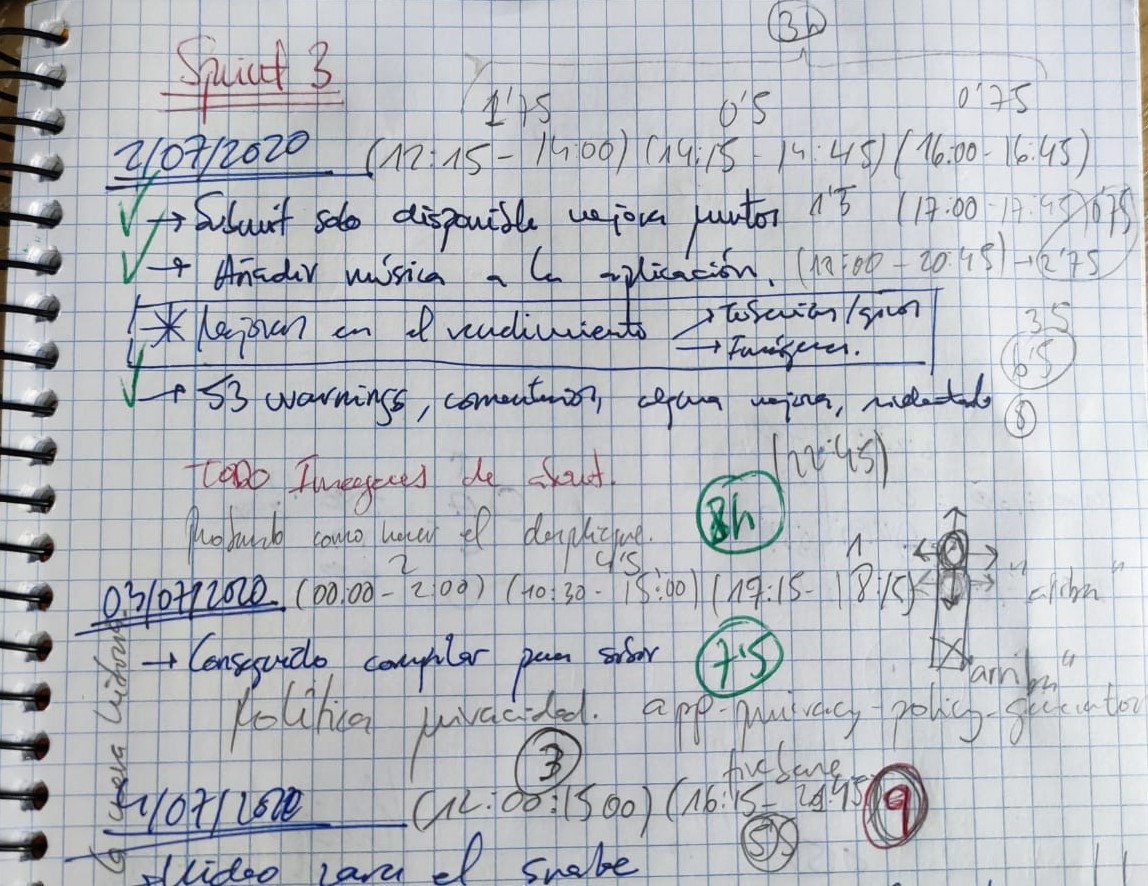 3h
Sprint 3
1'75 0'5 0'75
2/07/2020 (12:15 - 14:00) (14:15 - 14:45) (16:00 - 16:45)
→ Submit solo disponible mejora puntos 1'5 (17:00 - 17:45) 0'75
→ Añadir música a la aplicación. (18:00 - 20:45) → 2'75
* Mejoras en el rendimiento → /giros
→ Imágenes.
35
6'5
→ 53 warnings, comentarios, alguna mejora,
8
(22:45)
TODO Imágenes de about.
Probando como hacer el despliegue.
8h
2 4'5 1
03/07/2020 (00:00 - 2:00) (10:30 - 15:00) (17:15 - 18:15)
"arriba"
→ Conseguido compilar para
7'5
"arriba"
Política privacidad. app-privacy-policy-generator
3
firebase
4/07/2020 (12:00:15 00) (16:15 - 9
5'5
→ Video para el